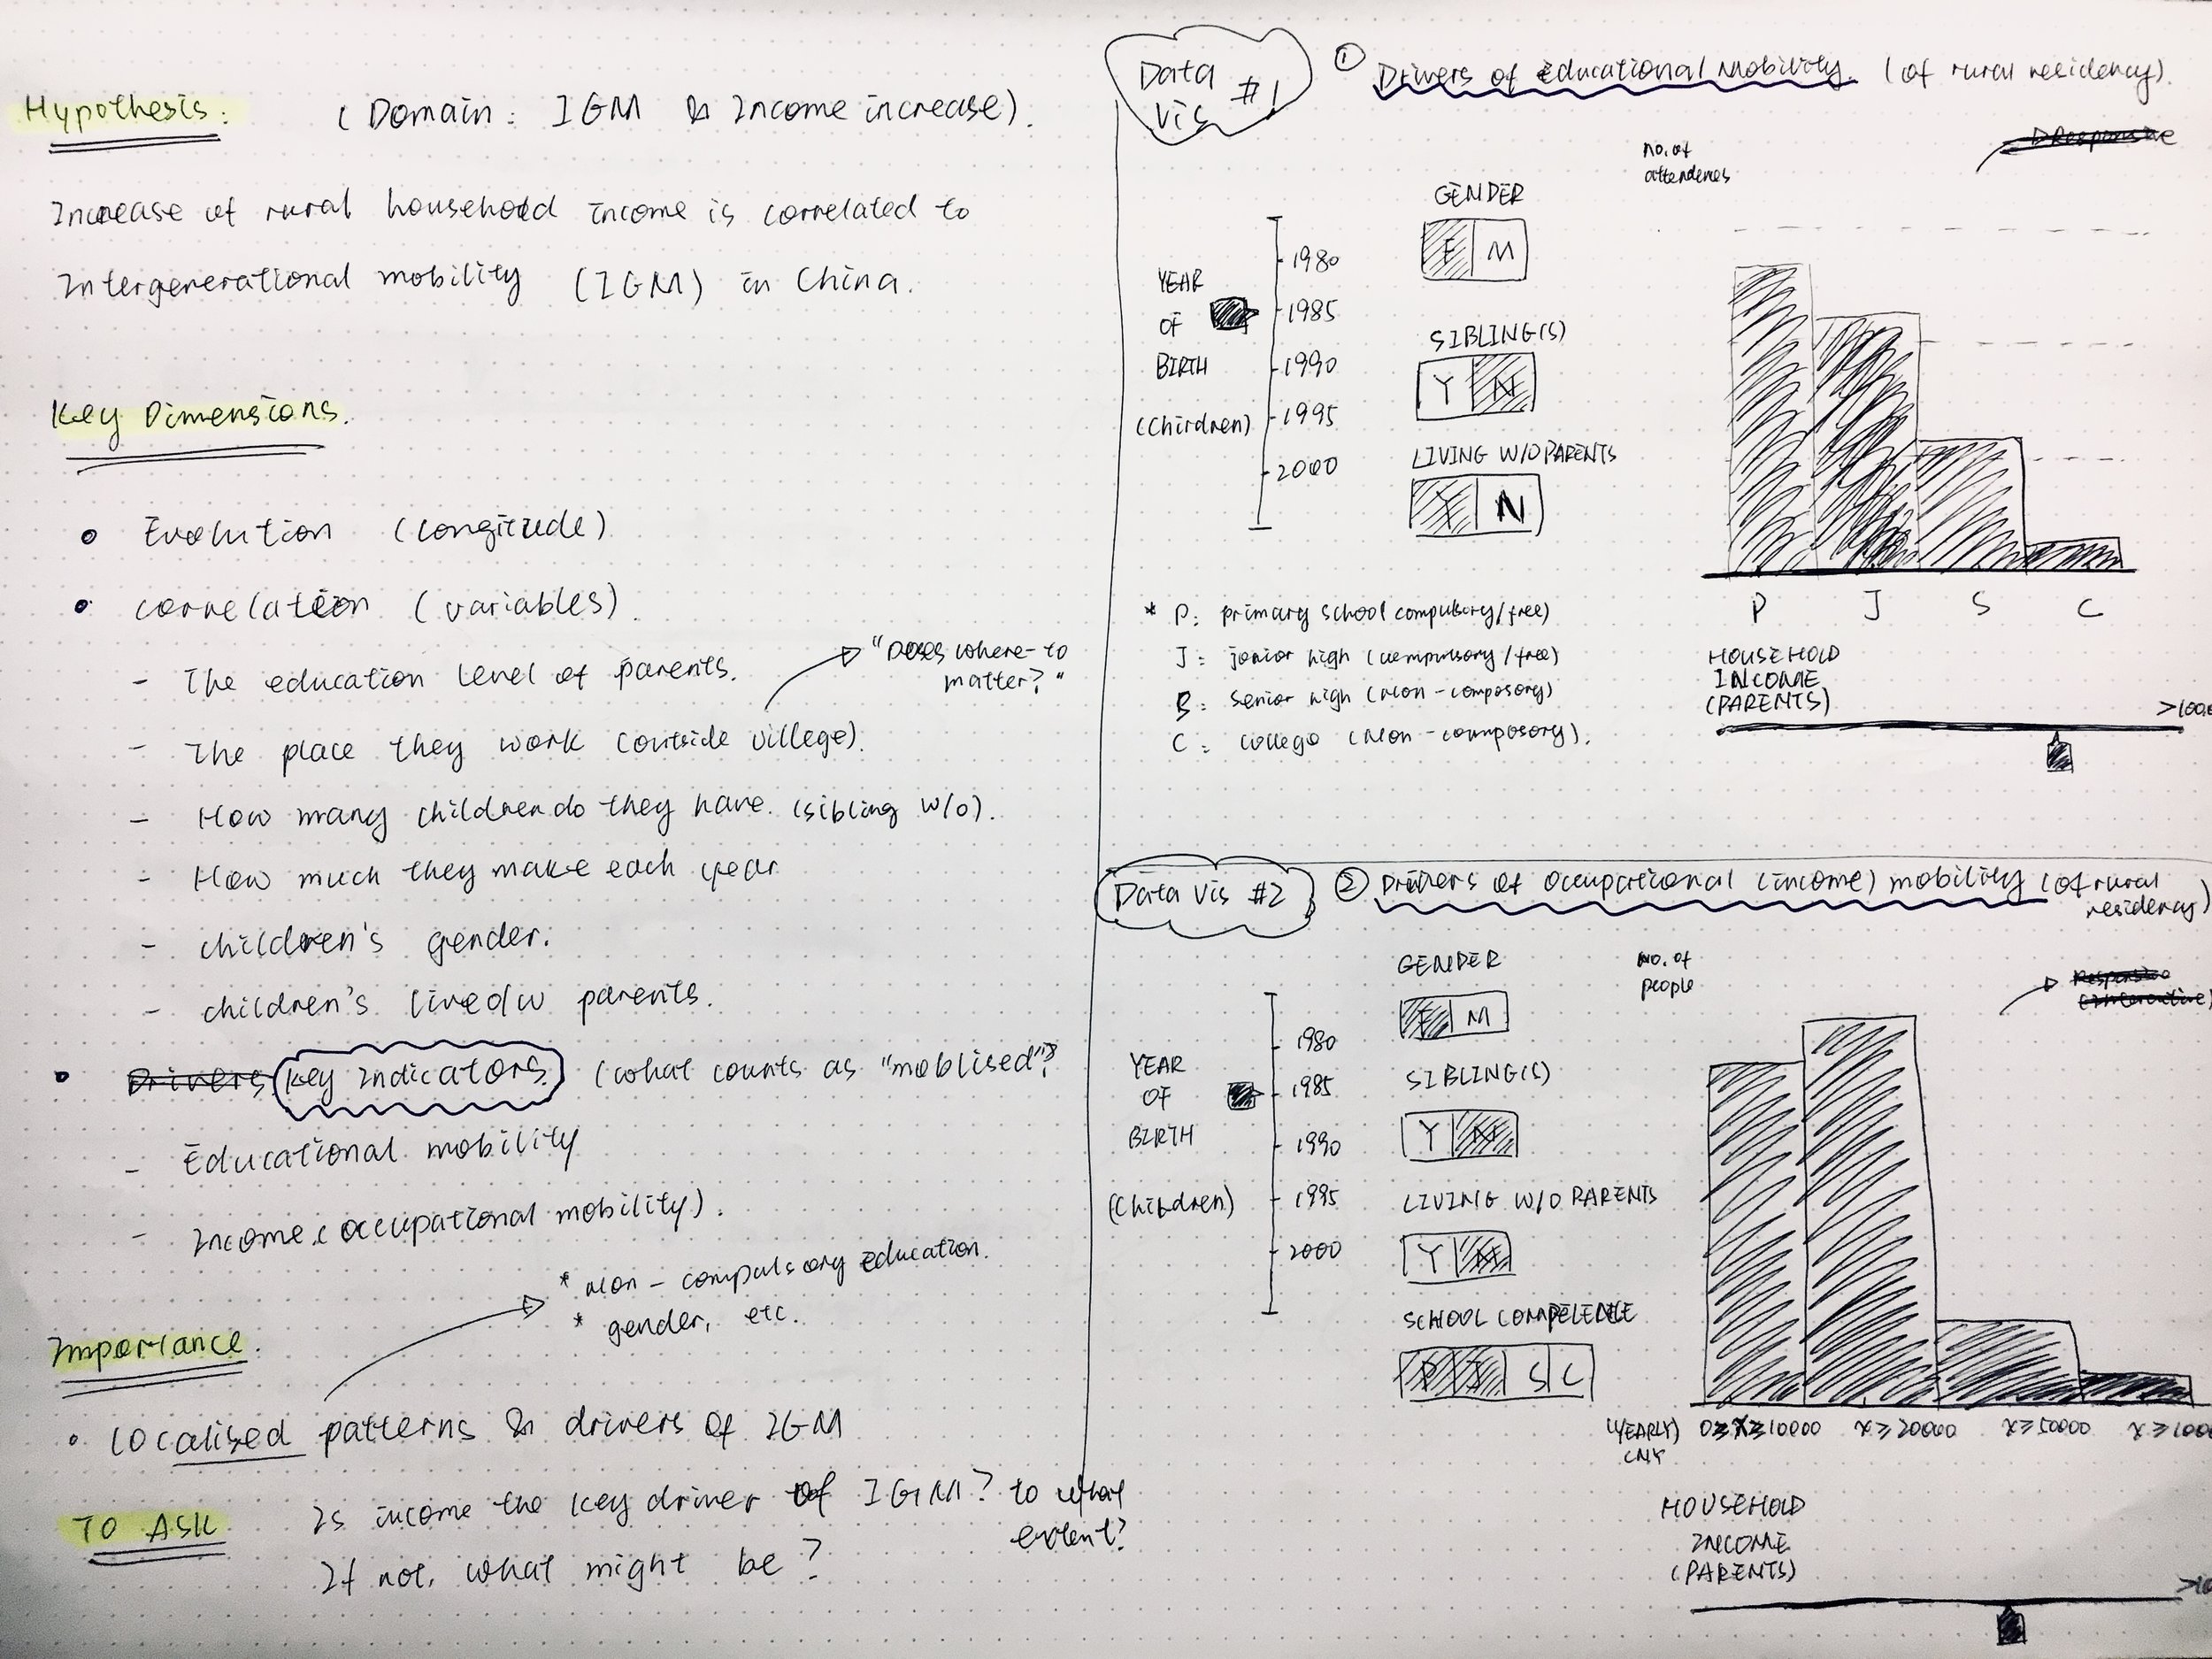 Hypothesis: (Domain: IGM & Income increase).
Increase of rural household income is correlated to
Intergenerational mobility (IGM) in China.
Key Dimensions.
• Evolution (longitude)
• correlation (variables).
- The education level of parents.
"Does where-to
matter?"
- The place they work (outside villege).
- How many children do they have. (sibling w/o).
- How much they make each year
- children's gender.
- children's lived/w parents.
• Drivers Key Indicators. (what counts as "moblised"?
- Educational mobility
- Income (occupational mobility).
* Non-compulsory education.
* gender, etc.
Importance.
• Localised patterns & drivers of IGM
TO ASK Is income the key driver of IGM? to what
extent?
If not, what might be?
Data
Vis #1
① Drivers of Educational Mobility. (of rural residency).
Responsive
no. of
attendences
GENDER
F M
YEAR
OF
BIRTH
(Children)
1980
1985
1990
1995
2000
SIBLING(S)
Y N
LIVING W/O PARENTS
Y N
P J S C
* P: primary school compulsory/free)
J: jonior high (compulsory/free)
S: senior high (Non-composory)
C: college (Non-composory).
HOUSEHOLD
INCOME
(PARENTS)
Data Vis #2
② Drivers of occupational (income) mobility (of rural
residency)
Responsive
(interactive)
no. of
people
GENDER
F M
YEAR
OF
BIRTH
(Children)
1980
1985
1990
1995
2000
SIBLING(S)
Y N
LIVING W/O PARENTS
Y N
SCHOOL COMPELENCE
P J S C
(YEARLY)
CNY
0≥X≥10000 x≥20000 x≥50000
HOUSEHOLD
INCOME
(PARENTS)